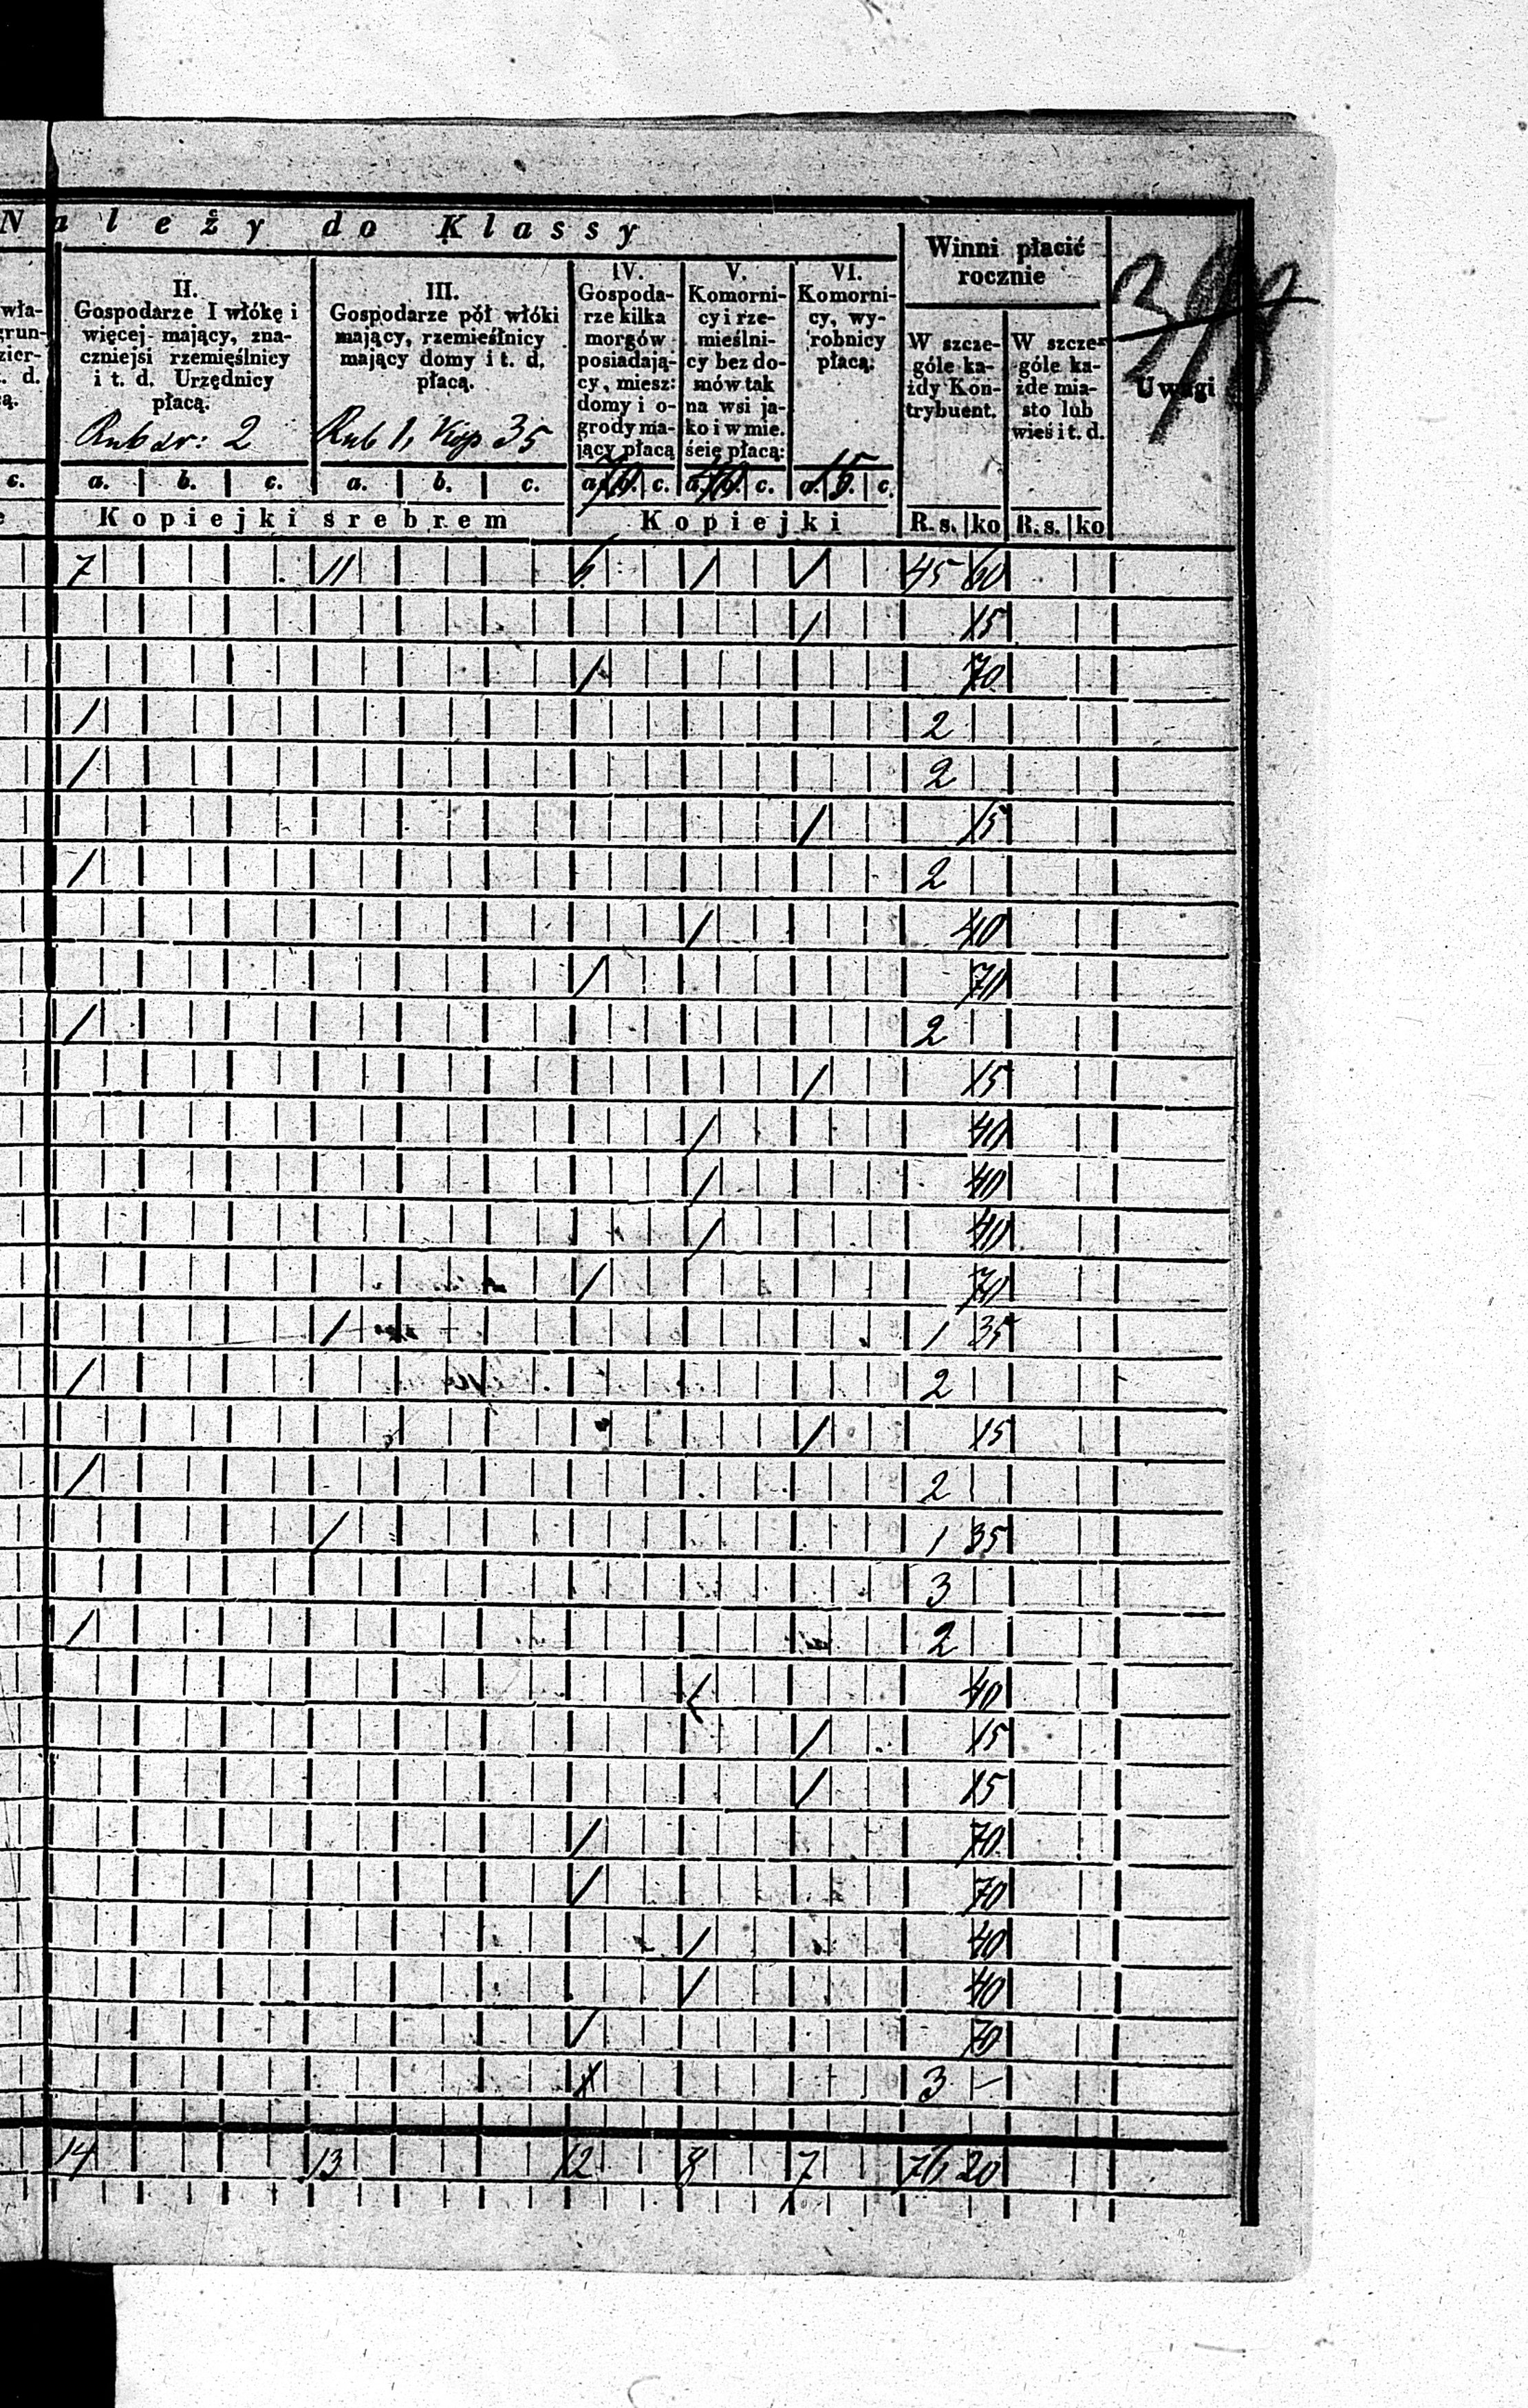 Należy do Klassy
Winni płacić
rocznie
Uwagi
wła-
grun-
zier-
. d.
ą.
II.
Gospodarze I włókę i
więcej mający, zna-
czniejsi rzemięślnicy
i t. d. Urzędnicy
płacą.
Rub sr: 2
III.
Gospodarze pół włóki
mający, rzemieślnicy
mający domy i t. d.
płacą.
Rub 1, Kop 35
IV.
Gospoda-
rze kilka
morgów
posiadają-
cy, miesz:
domy i o-
grody ma-
jący płacą
70
V.
Komorni-
cy i rze-
mieślni-
cy bez do-
mów tak
na wsi ja-
ko i w mie.
ście płacą:
40
VI.
Komorni-
cy, wy-
robnicy
płacą:
15
W szcze-
góle ka-
żdy Kon-
trybuent.
W szcze-
góle ka-
żde mia-
sto lub
wieś i t. d.
c. a. b. c. a. b. c. a. b. c. a. b. c. a. b. c.
Kopiejki srebrem Kopiejki R. s. ko R. s. ko
7 11 6 1 1 45 60
1 15
1 70
1 2
1 2
1 15
1 2
1 40
1 70
1 2
1 15
1 40
1 40
1 40
1 70
1 1 35
1 2
1 15
1 2
1 1 35
3
1 2
1 40
1 15
1 15
1 70
1 70
1 40
1 40
1 70
3 –
14 13 12 8 7 76 20